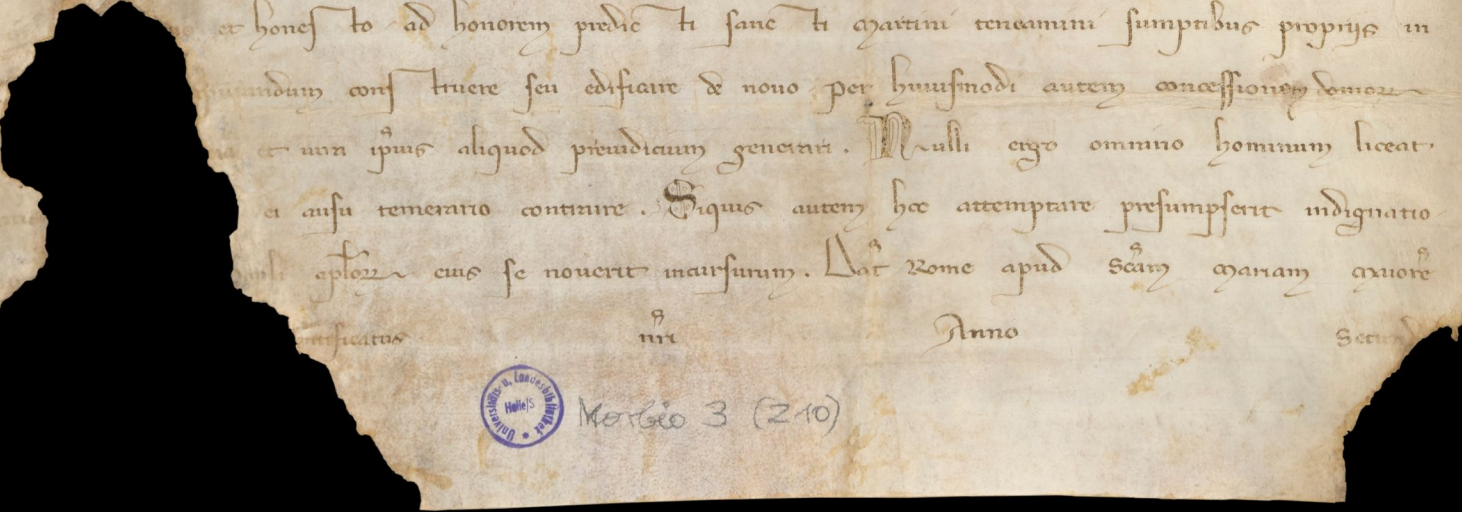 et honesto ad honorem predicti sancti Martini teneamini sumptibus propriis in
construere seu edificare de nouo. per huiusmodi autem concessionem domorum
et uinee ipsius aliquod preiudicium generari. Nulli ergo omnino hominum liceat
ei ausu temerario contraire. Siquis autem hoc attemptare presumpserit indignatio-
aplorum eius se nouerit incursurum. Dat Rome apud Scam Mariam Maiore
pontificatus nri Anno Secundo
Universitäts- u. Landesbibliothek
Halle/S
Morbio 3 (Z10)